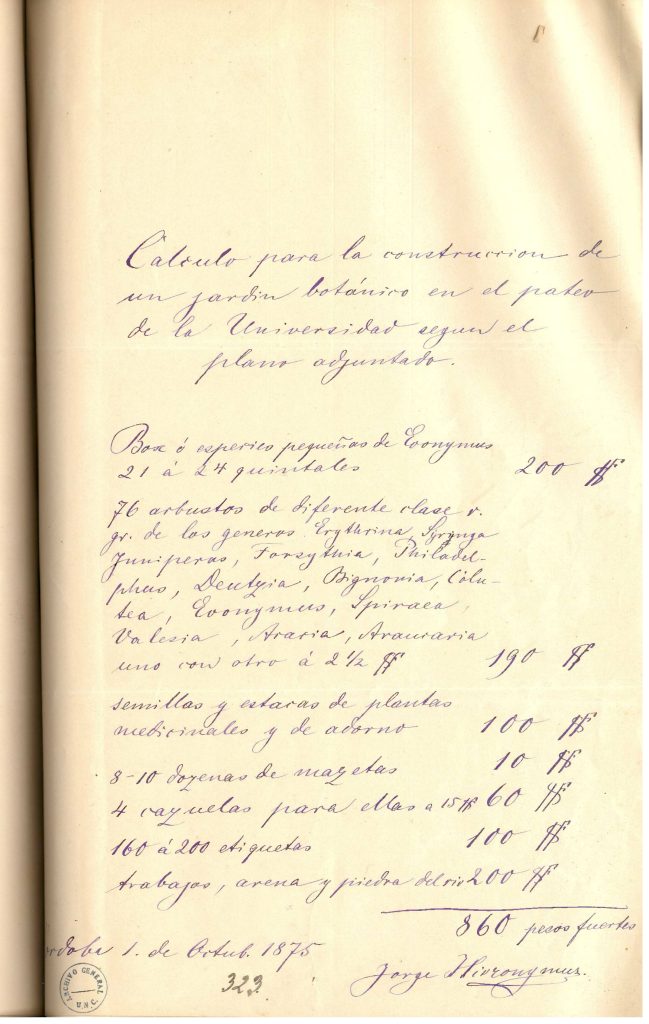 Calculo para la construccion de
un jardin botánico en el pateo
de la Universidad segun el
plano adjuntado.
Box ó esperico pequeñas de Evonymus
21 á 24 quintales 200 $f
76 arbustos de diferente clase v.
gr. de los generos Erythrina, Syringa
Juniperas, Forsythia, Philadel-
phus, Deutzia, Bignonia, Colu-
tea, Evonymus, Spiraea,
Valesia, Araria, Araucaria
uno con otro á 2 1/2 $f 190 $f
semillas y estacas de plantas
medicinales y de adorno 100 $f
8-10 dozenas de mazetas 10 $f
4 cazuelas para ellas a 15 $f 60 $f
160 á 200 etiquetas 100 $f
trabajos, arena y piedra del rio 200 $f
860 pesos fuertes
rdoba 1. de Octub. 1875
Jorge Hieronymus.
323.
ARCHIVO GENERAL
U.N.C.